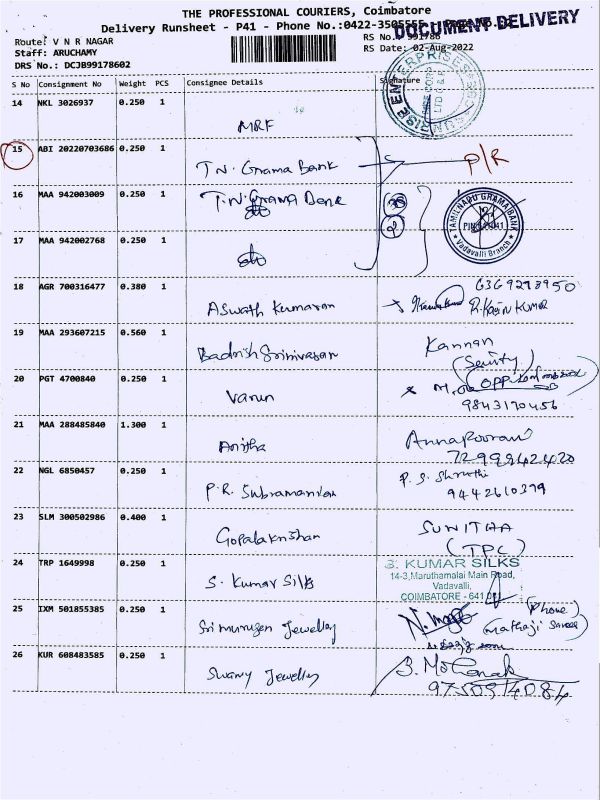 THE PROFESSIONAL COURIERS, Coimbatore
Delivery Runsheet - P41 - Phone No.:0422-3505555
DOCUMENT DELIVERY
Route: V N R NAGAR RS No. 991786
Staff: ARUCHAMY RS Date: 02-Aug-2022
DRS No.: DCJB99178602
S No Consignment No Weight PCS Consignee Details Signature
14 NKL 3026937 0.250 1
MRF
15 ABI 20220703686 0.250 1
T.N. Grama Bank P/R
16 MAA 942003009 0.250 1 T.N. Grama Bank
TAMILNADU GRAMA BANK
Vadavalli Branch
17 MAA 942002768 0.250 1
do
18 AGR 700316477 0.380 1
Aswath Kumaran R. KABIN KUMAR
19 MAA 293607215 0.560 1 Kannan
Badrish Srinivasan
20 PGT 4700840 0.250 1
Varun
9843170456
21 MAA 288485840 1.300 1
Anitha
22 NGL 6850457 0.250 1 P. S. Shruthi
P.R. Subramanian 9442610379
23 SLM 300502986 0.400 1 SUNITHA
Gopalakrishan (TPC)
24 TRP 1649998 0.250 1 S. KUMAR SILKS
14-3,Maruthamalai Main Road,
Vadavalli,
S. Kumar Silks COIMBATORE - 641 041
25 IXM 501855385 0.250 1 (Phone)
Sri murugan Jewellery
26 KUR 608483585 0.250 1
Swamy Jewellery